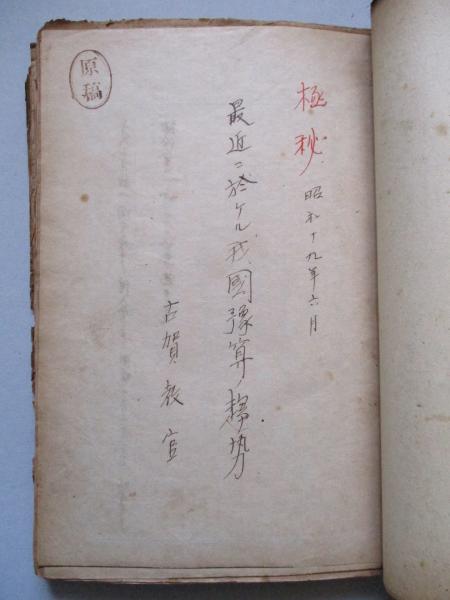 極秘 昭和十九年六月
最近ニ於ケル我國豫算ノ趨勢
古賀教官
原稿